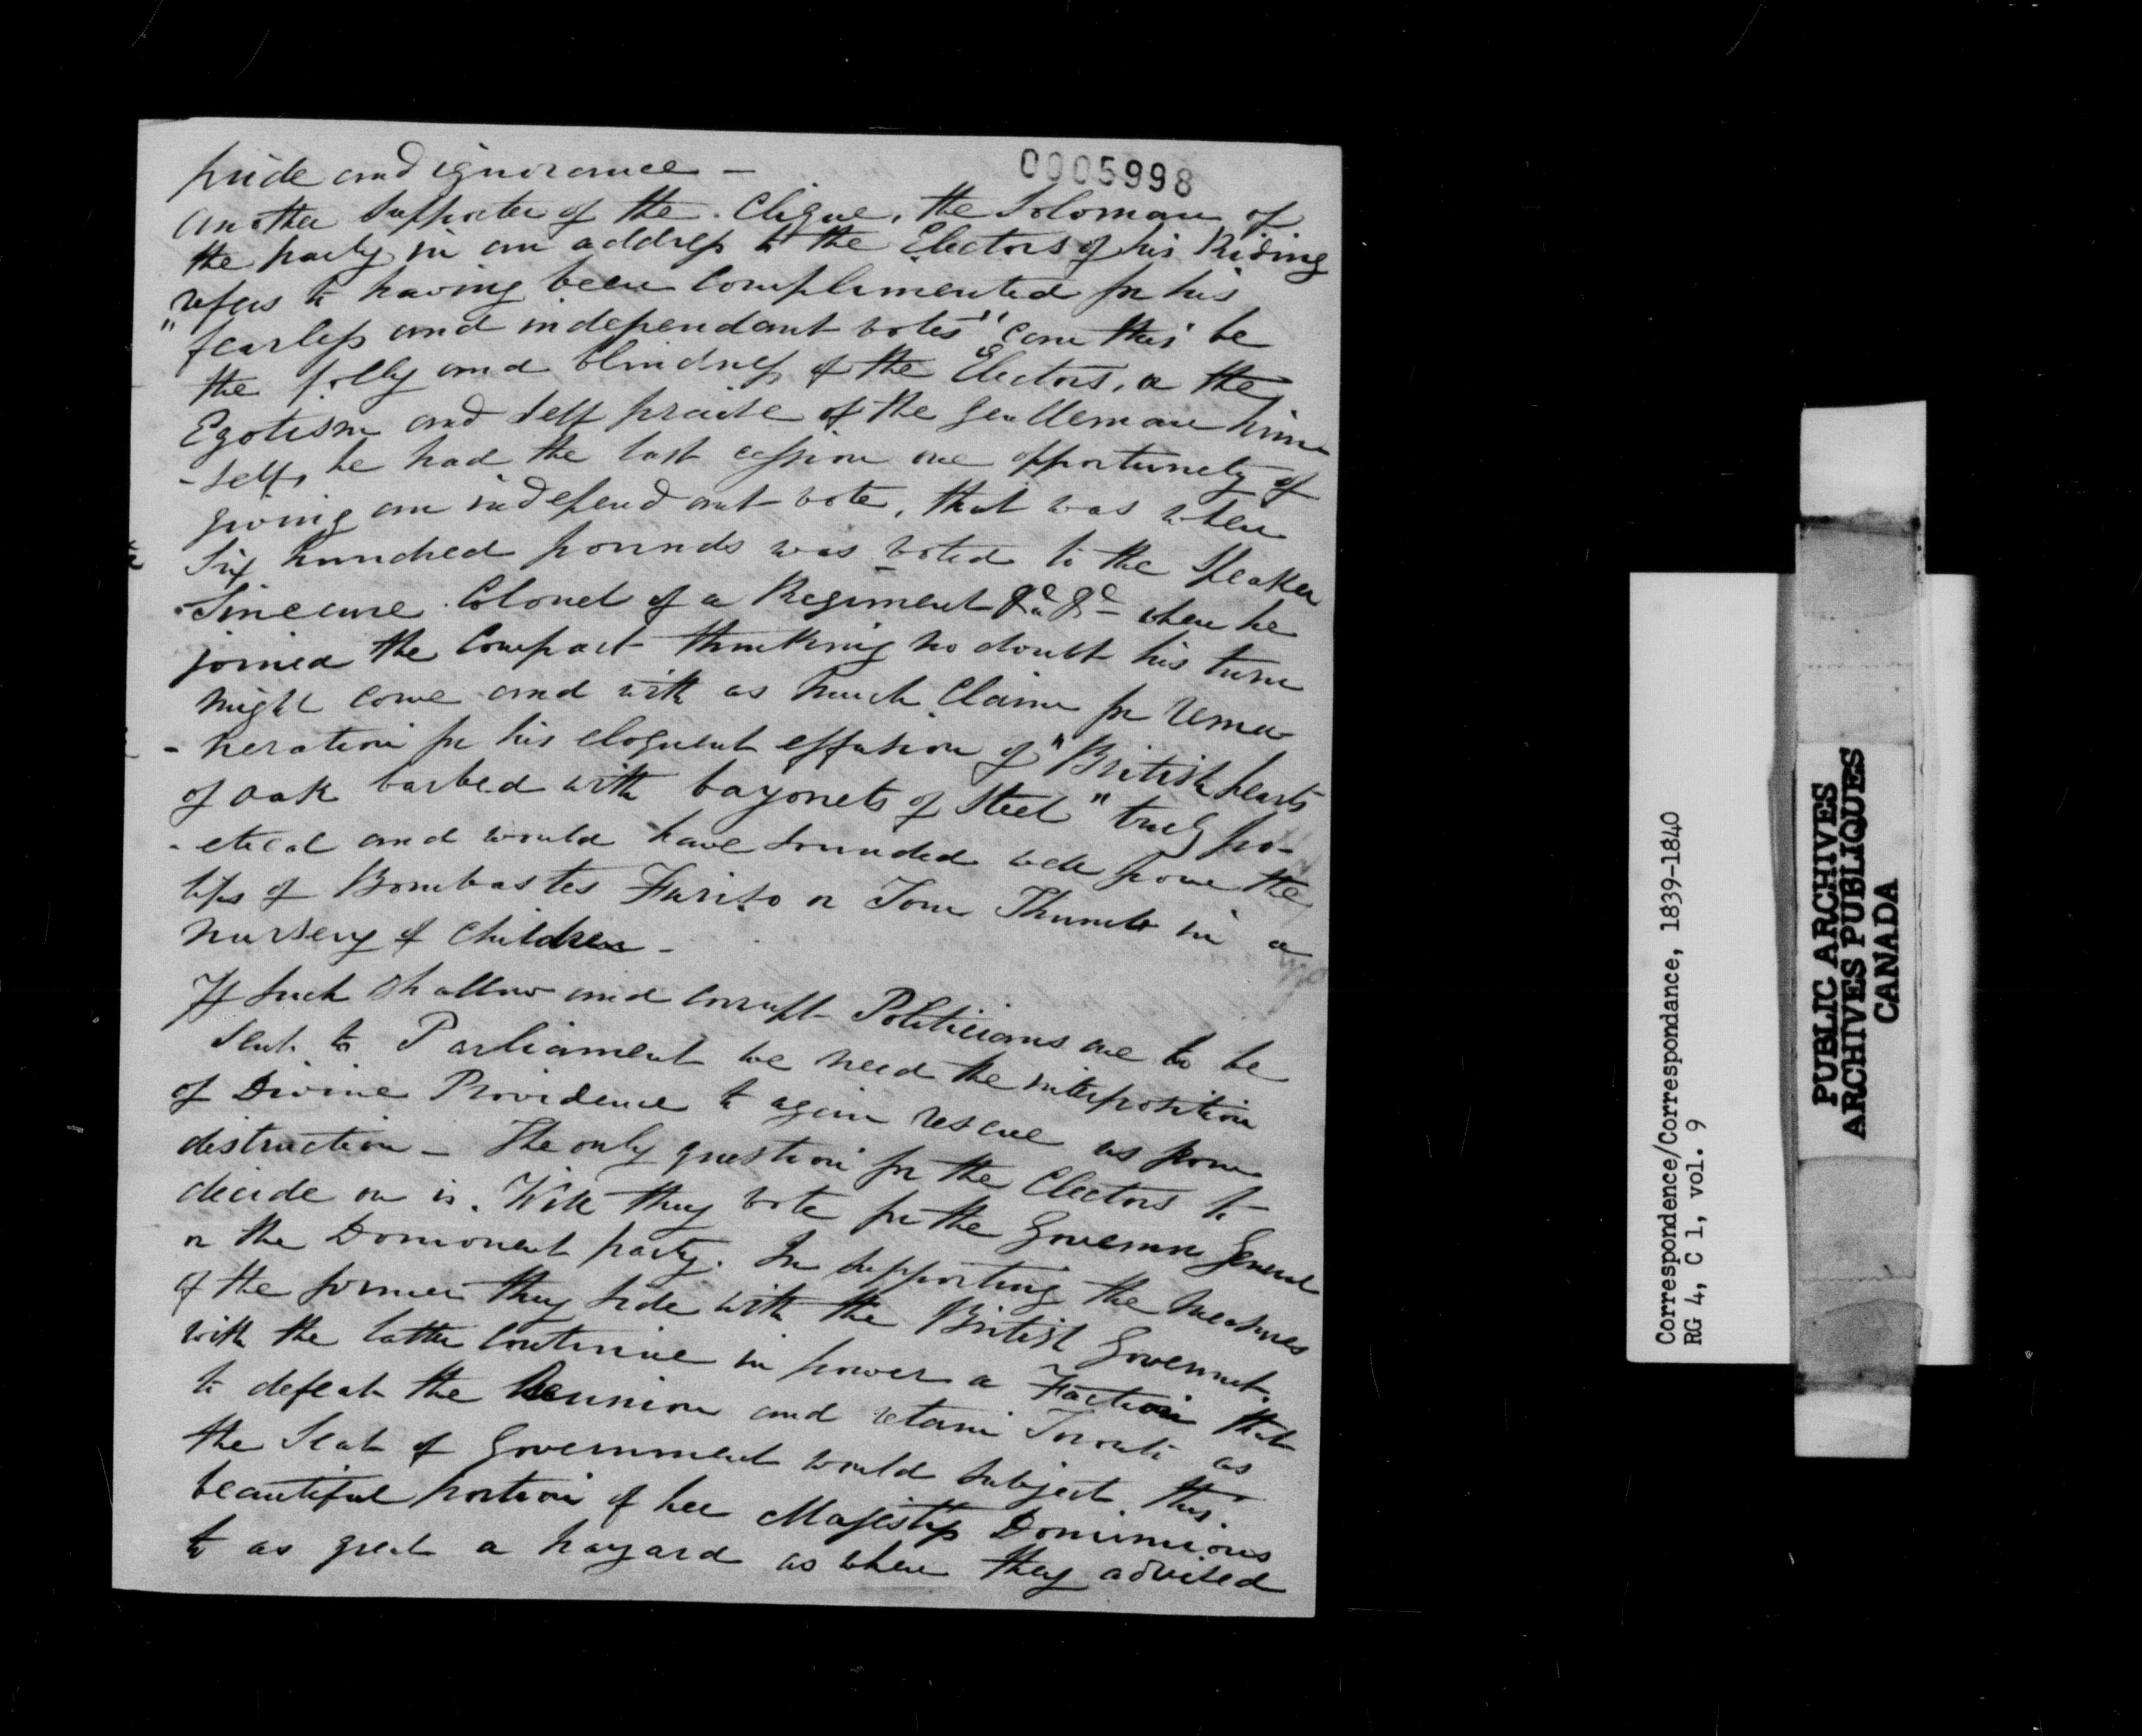 0005998
pride and ignorance -
Another supporter of the Clique, the Soloman of
the party in an address to the Electors of his Riding
refers to having been complimented for his
"fearless and independant votes" can this be
the folly and blindness of the Electors, or the
Egotism and self praise of the gentleman him
-self, he had the last cession one opportunety of
giving an independant vote, that was when
Six hundred pounds was voted to the Speaker
Sinecure Colonel of a Regiment &c &c - when he
joined the Compact thinking no doubt his turn
might come and with as much claim for remu
-neration for his eloquent effusion of "British hearts
of oak barbed with bayonets of Steel" truly po-
-etical and would have sounded well from the
lips of Bombastes Furioso or Tom Thumb in a
nursery of children -
If such shallow and corrupt Politicians are to be
sent to Parliament we need the interposition
of Divine Providence to again rescue us from
distruction - The only question for the Electors to
decide on is. Will they vote for the Governor General
or the Domonent party. In supporting the measures
of the former they side with the British Governmt.
with the latter continue in power a Faction that
to defeat the Reunion and retain Toronto as
the Seat of Government would subject this
beautiful portion of her Majestys Dominions
to as great a hazard as when they advised
Correspondence/Correspondance, 1839-1840
RG 4, C 1, vol. 9
PUBLIC ARCHIVES
ARCHIVES PUBLIQUES
CANADA